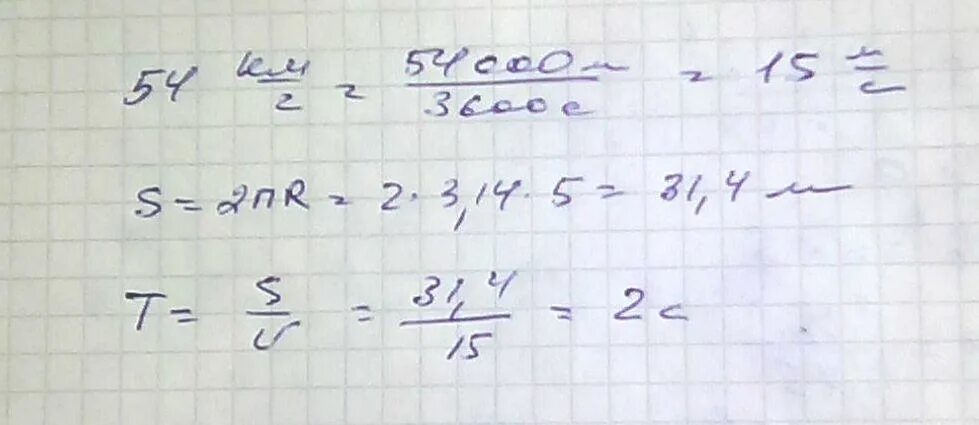 54 км/г = 54000м/3600с = 15 м/с
S = 2ПR = 2 · 3,14 · 5 = 31,4 м
T = S/υ = 31,4/15 = 2 с